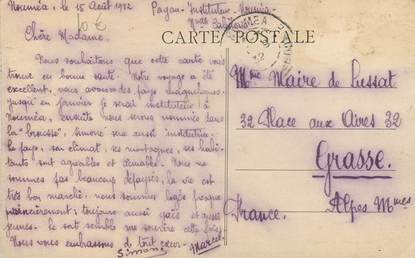 Nouméa, le 15 Août 1912
Pagan - Instituteur - Nouméa
Nlle Calédonie
10 €
CARTE POSTALE
Chère Madame,
Nous souhaitons que cette carte vous
trouve en bonne santé. Notre voyage a été
excellent, vous avons des pays magnifiques
jusqu'en janvier je serai instituteur à
Nouméa, ensuite nous serons nommés dans
la "brousse", Simone sera aussi institutrice.
Le pays, son climat, ses montagnes, ses habi-
tants sont agréables et aimables. Nous ne
sommes pas beaucoup dépaysés, la vie est
très bon marché. nous sommes logés presque
princièrement, toujours aussi gais et aussi
jeunes. Le sort semble me sourire cette fois.
Nous vous embrassons de tout cœur.
Simone Marcel
Mme Maire de Lussat
32 Place aux Aires 32
Grasse.
Alpes Mmes
France.